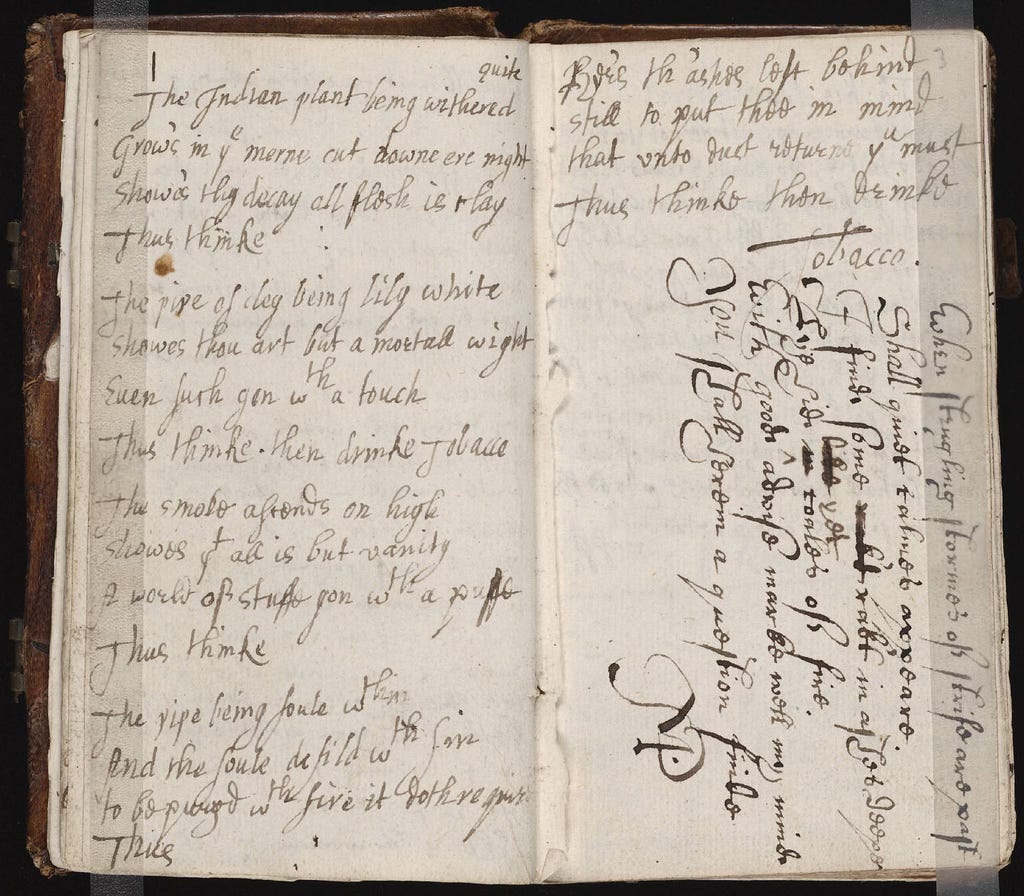 1
quite
The Indian plant being withered
Grow's in yͤ morne cut downe ere night
Show's thy decay all flesh is clay
Thus thinke
The pipe of cley being lily white
Showes thou art but a mortall wight
Even such gon wᵗʰ a touch
Thus thinke. then drinke Tobacco
The smoke ascends on high
Showes yᵗ all is but vanity
A world of stuffe gon wᵗʰ a puffe
Thus thinke
The pipe being foule wᵗʰin
And the soule defild wᵗʰ sin
to be purged wᵗʰ fire it doth requir
Thus
3
th'ashes left behind
still to put thee in mind
that vnto dust returne yᵘ must
Thus thinke then drinke
Tobacco.
When strugling stormes of strife are past
Shall quiet calmes appeare.
I finde some in ashes deepe
of fire.
With good advise marke well my minde
You shall herein a question finde